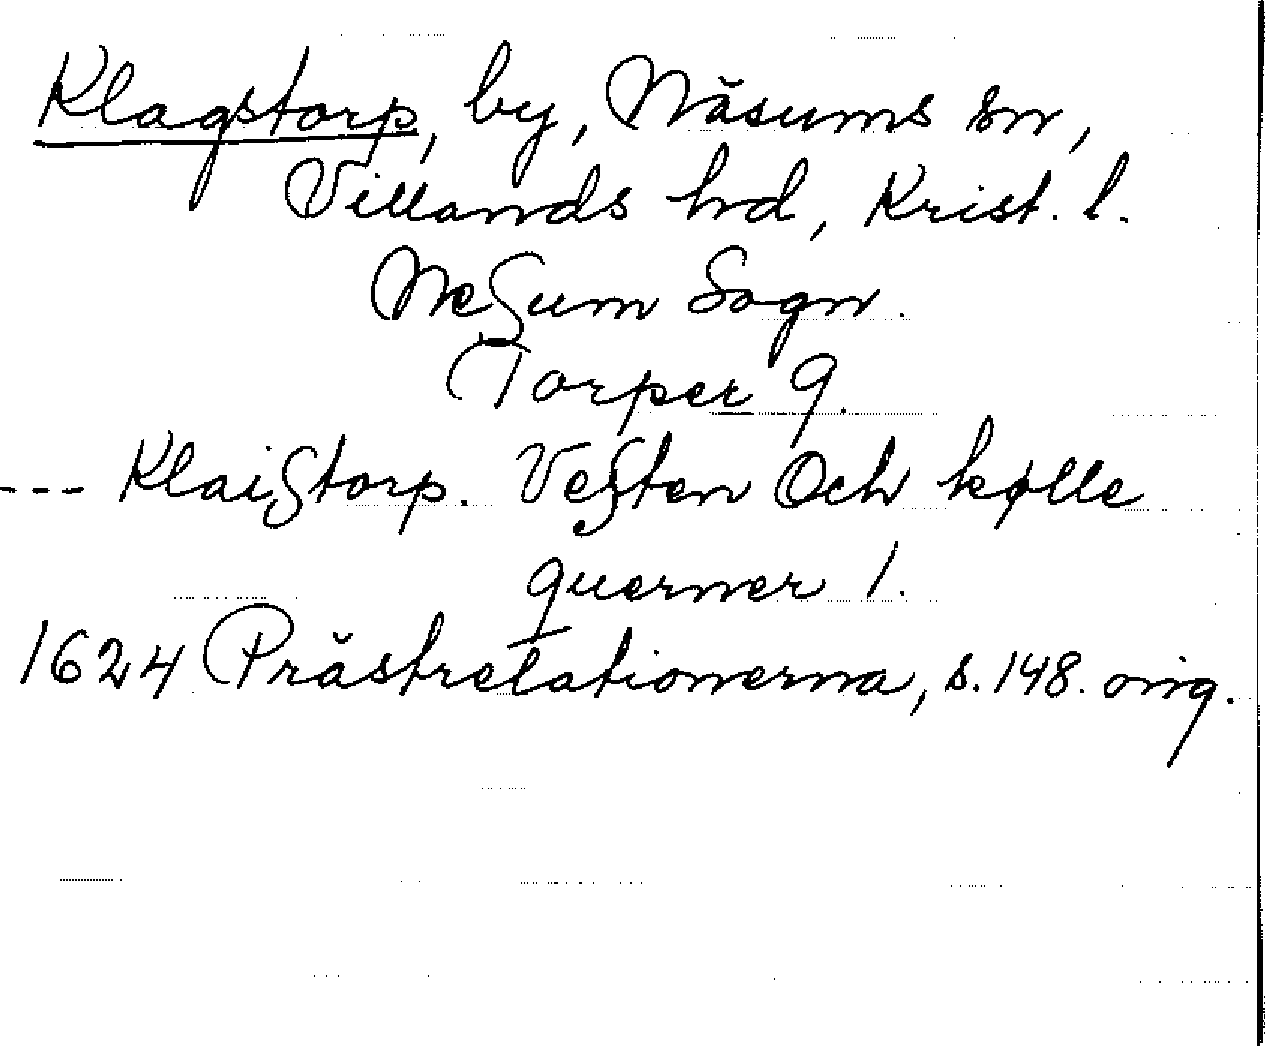 Klagstorp, by, Näsums sn,
Villands hd, Krist. l.
Neſum Sogn.
Torper 9.
--- Klaiſtorp. Veſten Och kølle
querner 1.
1624 Prästrelationerna, s. 148. orig.